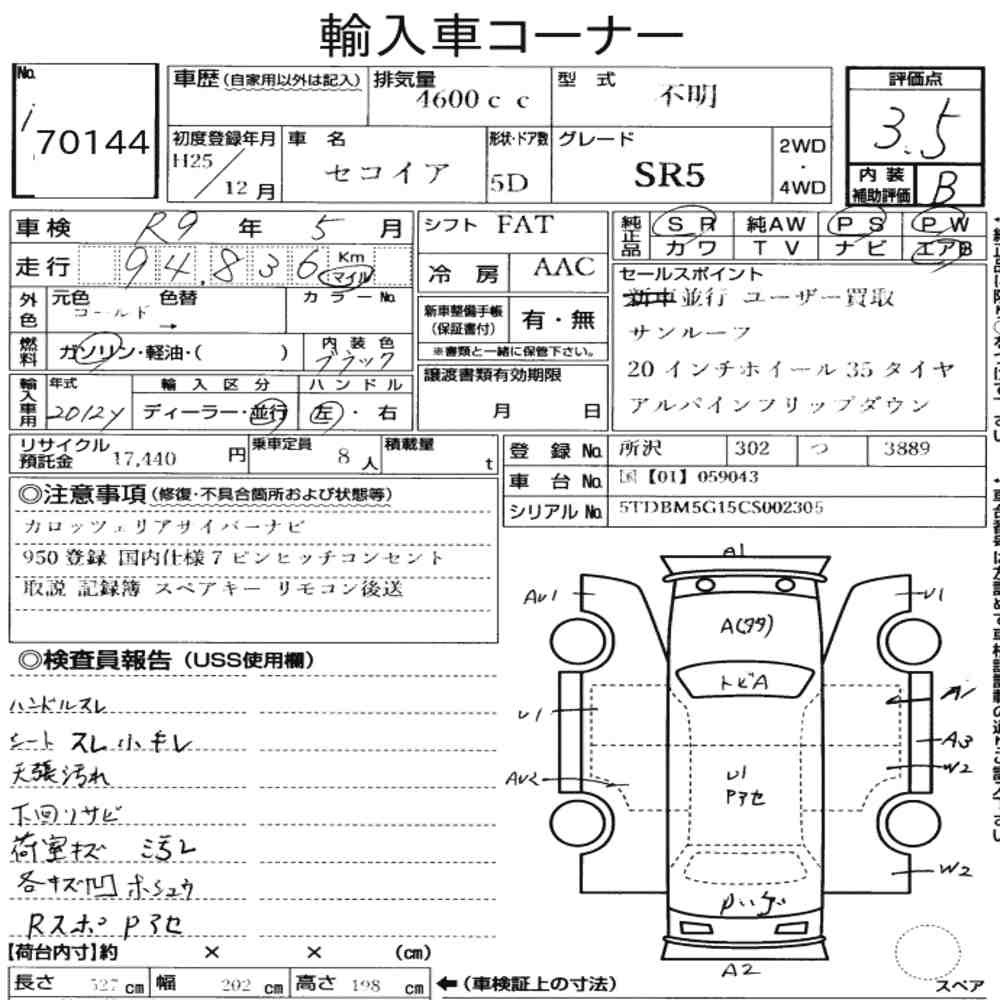 輸入車コーナー
No.
i
70144
車歴 (自家用以外は記入)
排気量
4600cc
型式
不明
評価点
3.5
内装
補助評価
B
初度登録年月
H25
12月
車名
セコイア
形状・ドア数
5D
グレード
SR5
2WD
・
4WD
車検 R9 年 5 月
シフト FAT
純正品
SR 純AW PS PW
カワ TV ナビ エアB
走行 94,836 Km マイル
冷房 AAC
セールスポイント
新車並行 ユーザー買取
サンルーフ
20インチホイール35タイヤ
アルパインフリップダウン
外色
元色 色替
ゴールド →
カラーNo.
新車整備手帳
(保証書付)
有・無
※書類と一緒に保管下さい。
燃料
ガソリン・軽油・( )
内装色
ブラック
譲渡書類有効期限
月 日
輸入車用
年式
2012y
輸入区分
ディーラー・並行
ハンドル
左・右
リサイクル
預託金 17,440 円
乗車定員 8 人
積載量 t
登録No. 所沢 302 つ 3889
車台No. 国【01】059043
シリアルNo. 5TDBM5G15CS002305
◎注意事項 (修復・不具合箇所および状態等)
カロッツェリアサイバーナビ
950登録 国内仕様7ピンヒッチコンセント
取説 記録簿 スペアキー リモコン後送
◎検査員報告 (USS使用欄)
ハンドルスレ
シート スレ小キレ
天張汚れ
下回リサビ
荷室キズ 汚レ
各キズ凹ホシュウ
Rスポ Pアセ
【荷台内寸】約 × × (cm)
長さ 527 cm 幅 202 cm 高さ 198 cm
←(車検証上の寸法)
A1
AU1
U1
トビA
U1
A1
A3
W2
AU2
U1
Pアセ
W2
A2
スペア